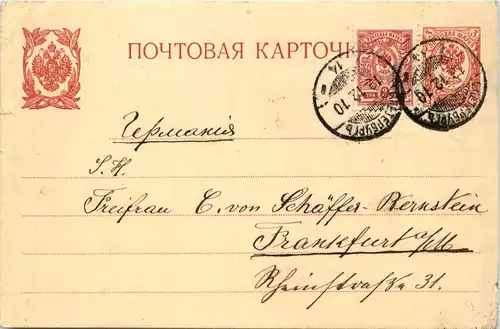 ПОЧТОВАЯ КАРТОЧКА
14
12 10
Германія
S. H.
Freifrau C. von Schäffer-Bernstein
Frankfurt a/M
Rheinstraße 31.